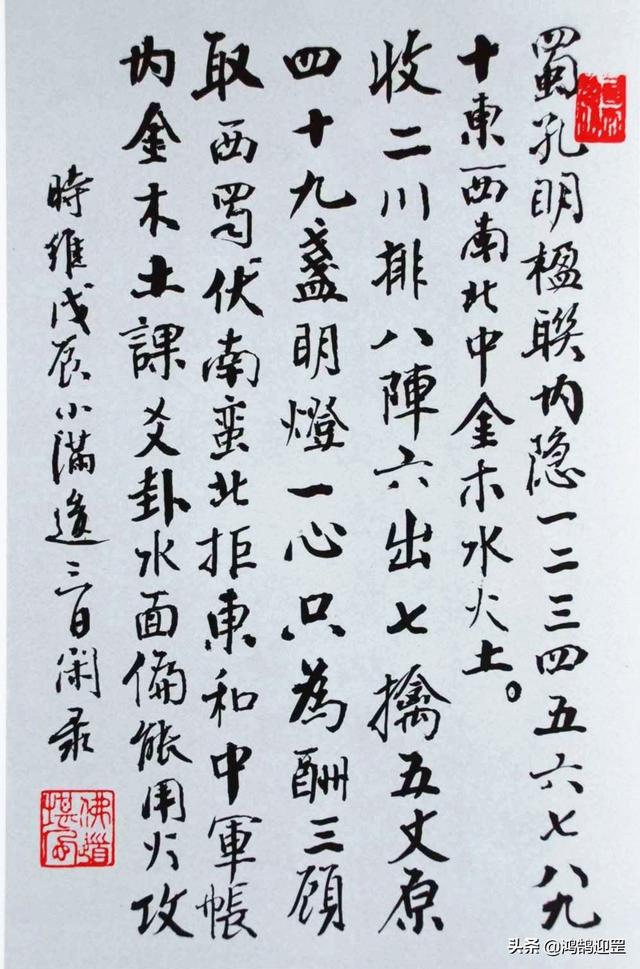 蜀孔明楹联内隐一二三四五六七八九
十東西南北中金木水火土。
收二川排八陣六出七擒五丈原
四十九盏明燈一心只為酬三顾
取西蜀伏南蛮北拒東和中軍帳
内金木土課爻卦水面偏能用火攻
時維戊辰小满後三日闲录
佛道
头条 @鸿鹄迎罡